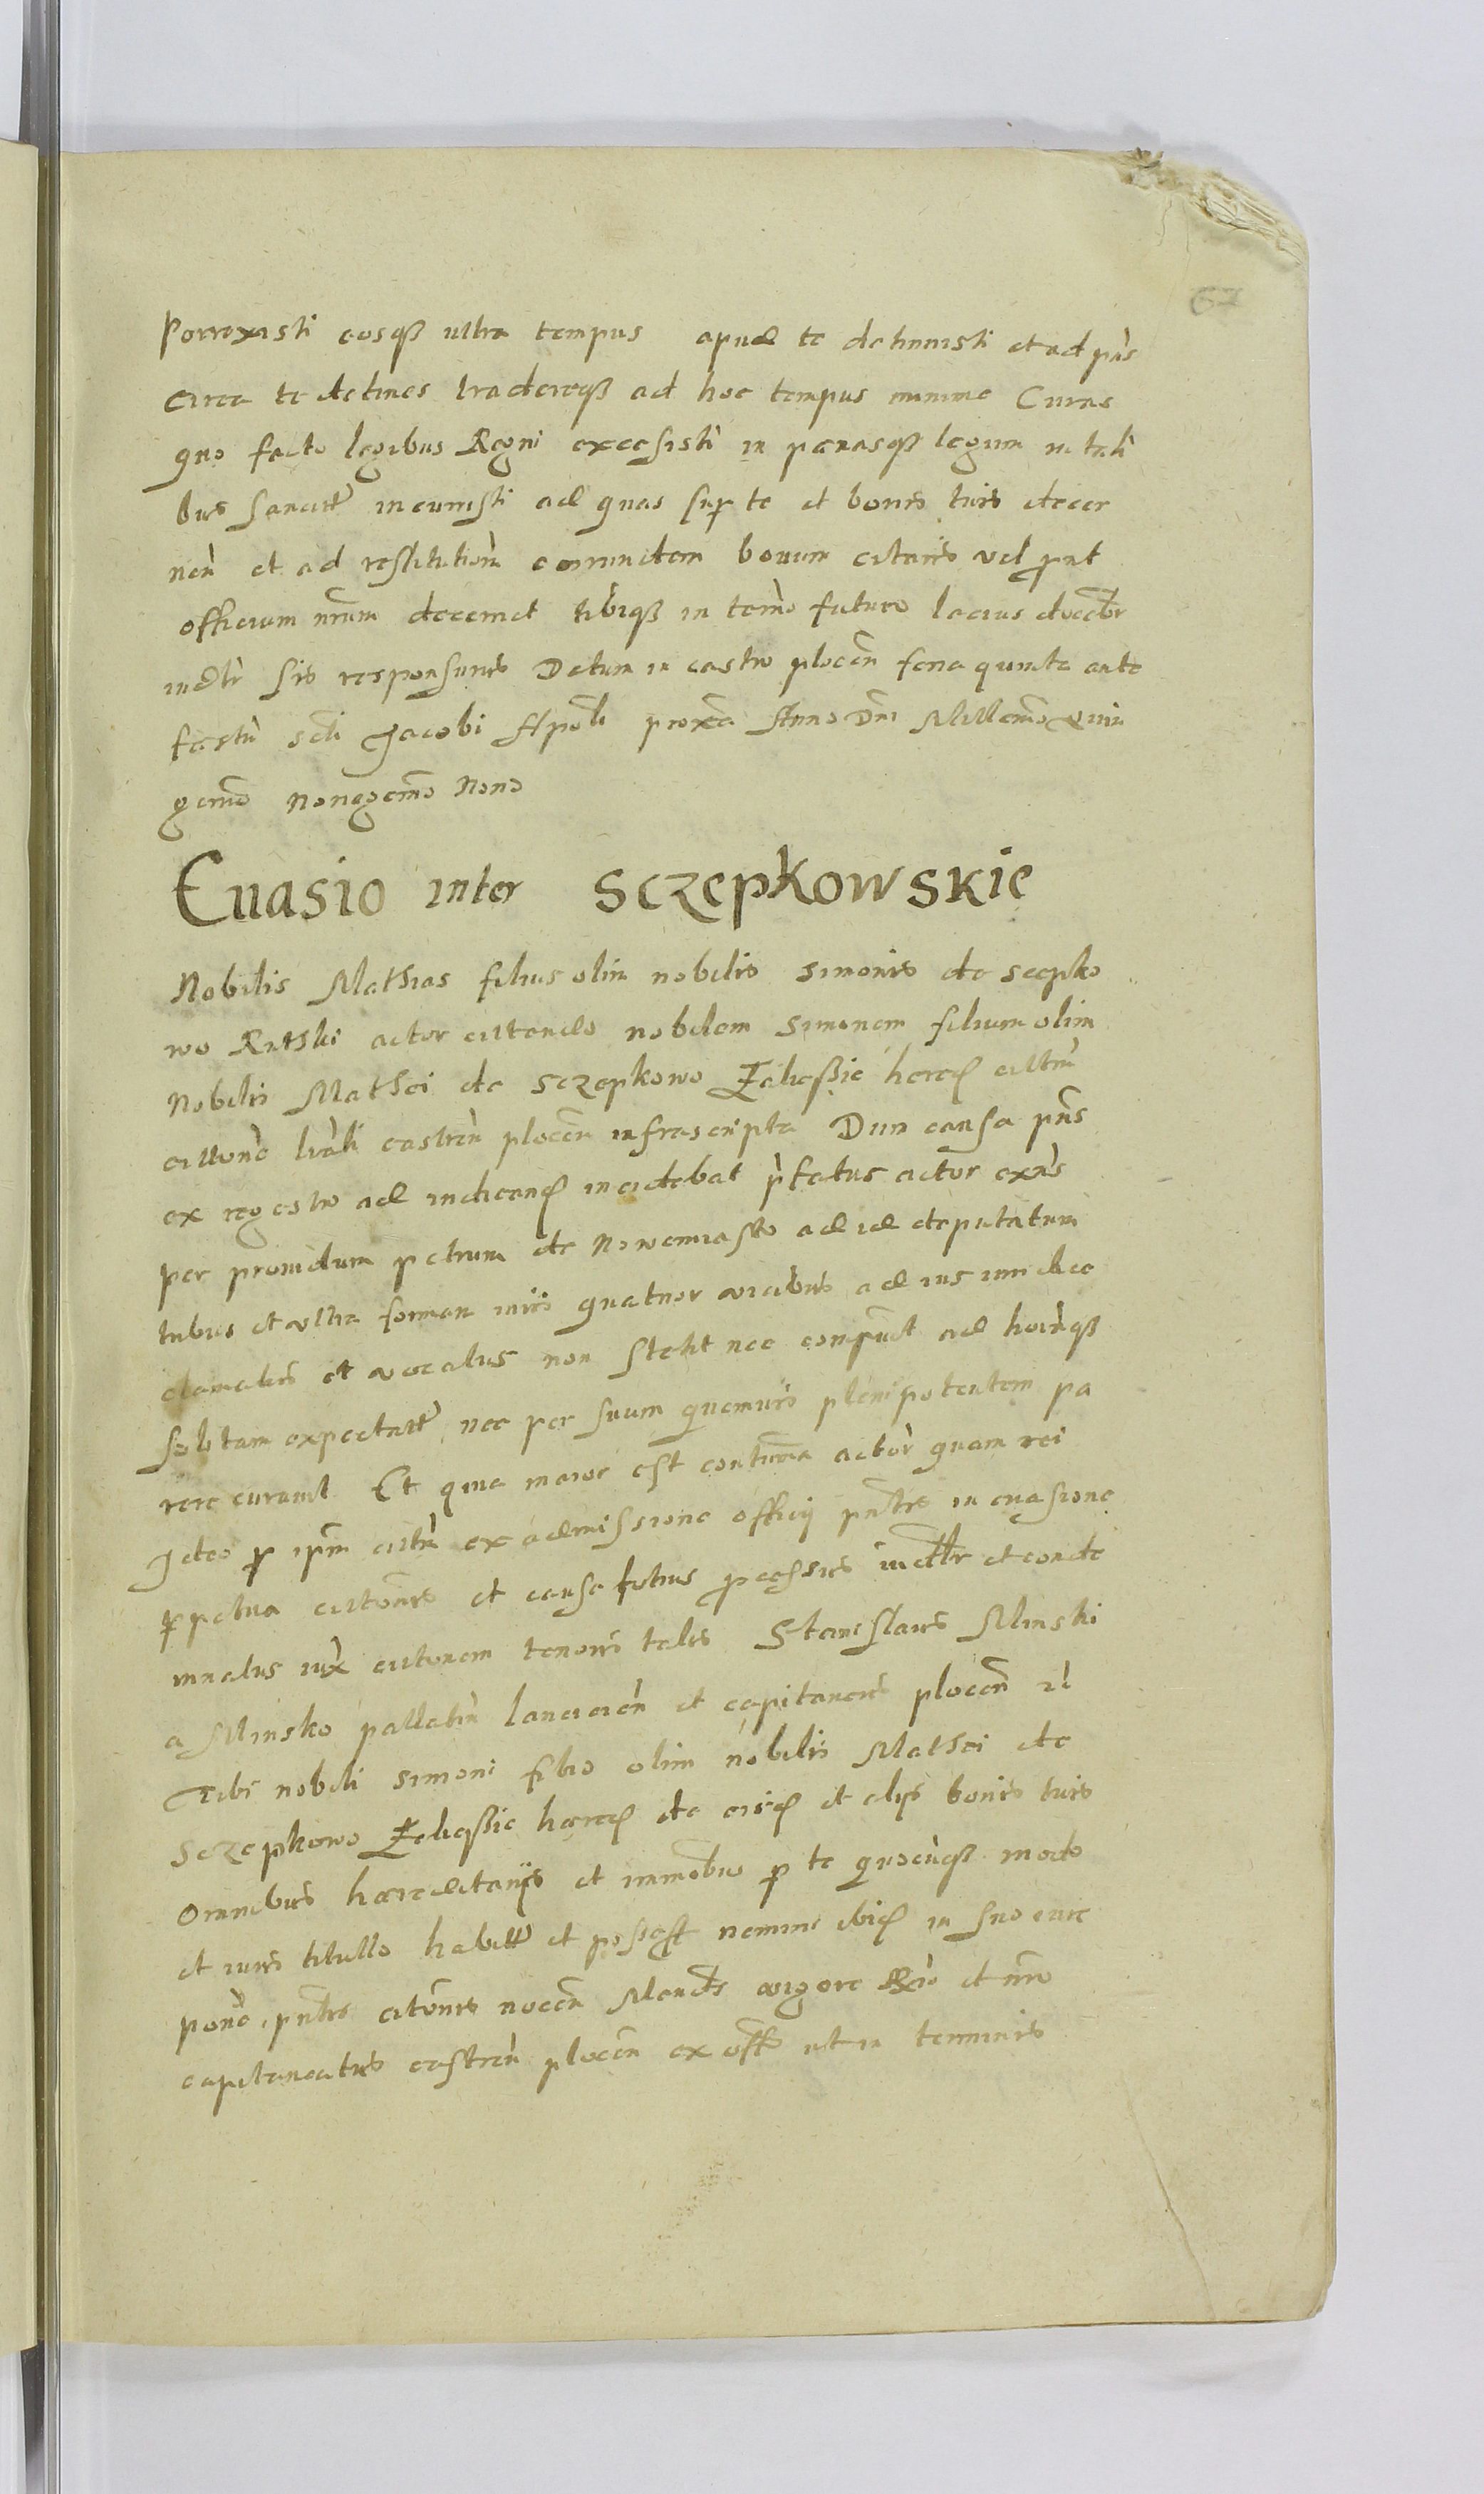 67
Porrexisti eosqȝ ultra tempus apud te detinuisti et ad pñs
circa te detines tradereqȝ ad hoc tempus minime Curas
quo facto legibus Regni excessisti in penasqȝ legum in tali
bus sancitt incurristi ad quas sup te et bonis tuis decer
nen et ad restitutionem eorundem bouum citaris vel prut
officium nrum decernet tibiqȝ in termo futuro lacius docebr
indltr sis responsurus Datum in castro plocen feria quinta ante
festu scti Jacobi Apłi proxa Anno Dni Millemo Quin
gemo Nonagemo Nono
Euasio inter Sczepkowskie
Nobilis Mathias filius olim nobilis Simonis de Scepko
wo Rutski actor citando nobilem Simonem filium olim
Nobilis Mathei de Sczepkowo Zalessie hered citatu
cittone lrali castren plocen infrascripta Dum causa pñs
ex regestro ad iudicand incidebat pfatus actor exns
per prouidum petrum de Nowemiasto ad id deputatum
tubus et ultra formam iuris quatuor vicibus ad ius iudice
clamatus et vocatus non stetit nec comparuit ad horamqȝ
solitam expectatt nec per suum quemuis plenipotentem pa
rere curauit Et quia maior est contuma actor quam rei
Ideo p ipm citatu ex admissione officij pntis in euasione
ppetua citonis et causa totius processus indltr et conde
mnatus iux citonem tenoris talis Stanislaus Minski
a Minsko pallatin lancicien et capitaneus plocen
Tibi nobili Simoni filio olim nobilis Mathei de
Sczepkowo Zalessie hered de eisd et alijs bonis tuis
omnibus haereditarijs et immobus p te quocunqȝ modo
et iuris titullo habitt et possess nemine ibid in suo iure
pone pntis citonis nocen Mandt vigore Rio et nro
capitaneatus castren plocen ex offo ut in terminis